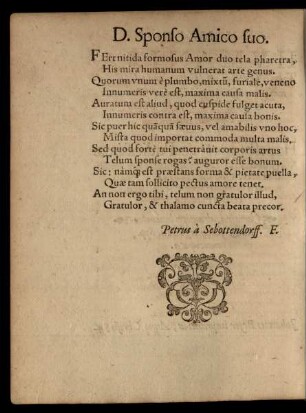 D. Sponso Amico suo.
FErt nitida formosus Amor duo tela pharetra,
His mira humanum vulnerat arte genus.
Quorum vnum è plumbo, mixtū, furiale, veneno
Innumeris verè est, maxima causa malis.
Auratum est aliud, quod cuspide fulget acuta,
Innumeris contra est, maxima causa bonis.
Sic puer hic quāquā sæuus, vel amabilis vno hoc,
Mista quod importat commoda multa malis.
Sed quod fortè tui penetrànit corporis artus
Telum sponse rogas? auguror esse bonum.
Sic: námq; est præstans forma & pietate puella,
Quæ tam sollicito pectus amore tenet.
An non ergo tibi, telum non gratulor illud,
Gratulor, & thalamo cuncta beata precor.
Petrus à Sebottendorff. F.